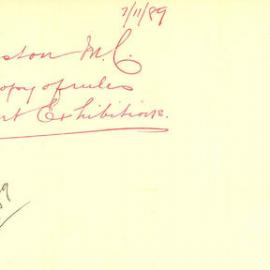 7/11/89
ston M.C.
opy of rules
nt Exhibitions.
9